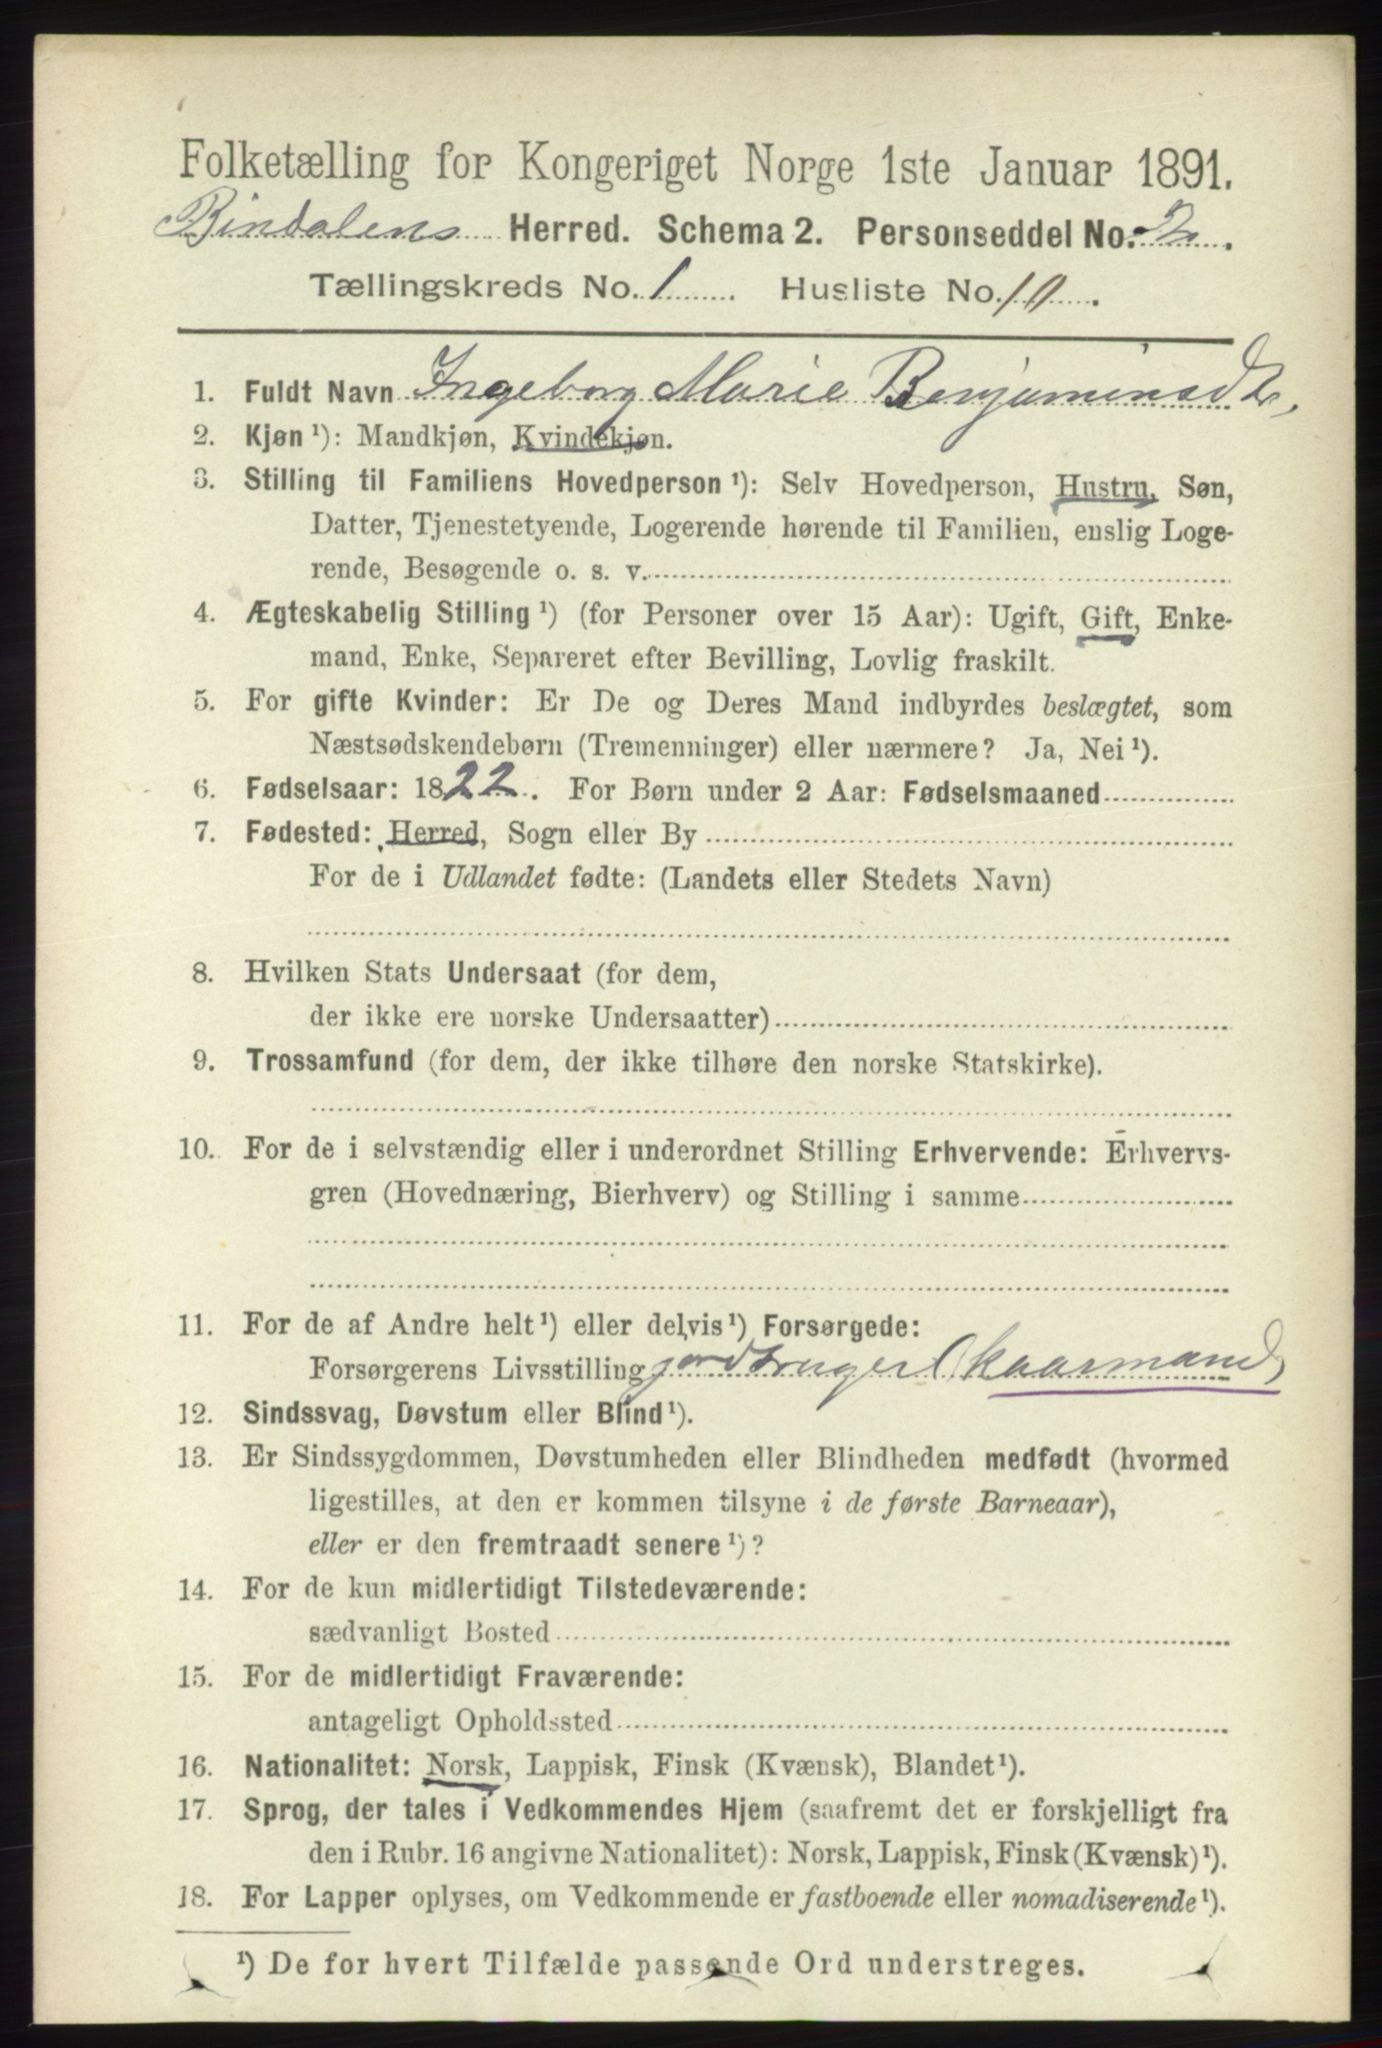 Folketælling for Kongeriget Norge 1ste Januar 1891.
Bindalens Herred. Schema 2. Personseddel No. 2.
Tællingskreds No. 1. Husliste No. 10.
1. Fuldt Navn Ingeborg Marie Benjaminsdtr.
2. Kjøn¹): Mandkjøn, Kvindekjøn.
3. Stilling til Familiens Hovedperson¹): Selv Hovedperson, Hustru, Søn,
Datter, Tjenestetyende, Logerende hørende til Familien, enslig Loge-
rende, Besøgende o. s. v.
4. Ægteskabelig Stilling¹) (for Personer over 15 Aar): Ugift, Gift, Enke-
mand, Enke, Separeret efter Bevilling, Lovlig fraskilt.
5. For gifte Kvinder: Er De og Deres Mand indbyrdes beslægtet, som
Næstsødskendebørn (Tremenninger) eller nærmere? Ja, Nei¹).
6. Fødselsaar: 1822. For Børn under 2 Aar: Fødselsmaaned
7. Fødested: Herred, Sogn eller By
For de i Udlandet fødte: (Landets eller Stedets Navn)
8. Hvilken Stats Undersaat (for dem,
der ikke ere norske Undersaatter)
9. Trossamfund (for dem, der ikke tilhøre den norske Statskirke).
10. For de i selvstændig eller i underordnet Stilling Erhvervende: Erhvervs-
gren (Hovednæring, Bierhverv) og Stilling i samme
11. For de af Andre helt¹) eller delvis¹) Forsørgede:
Forsørgerens Livsstilling jordbruger (kaarmand)
12. Sindssvag, Døvstum eller Blind¹).
13. Er Sindssygdommen, Døvstumheden eller Blindheden medfødt (hvormed
ligestilles, at den er kommen tilsyne i de første Barneaar),
eller er den fremtraadt senere¹)?
14. For de kun midlertidigt Tilstedeværende:
sædvanligt Bosted
15. For de midlertidigt Fraværende:
antageligt Opholdssted
16. Nationalitet: Norsk, Lappisk, Finsk (Kvænsk), Blandet¹).
17. Sprog, der tales i Vedkommendes Hjem (saafremt det er forskjelligt fra
den i Rubr. 16 angivne Nationalitet): Norsk, Lappisk, Finsk (Kvænsk)¹).
18. For Lapper oplyses, om Vedkommende er fastboende eller nomadiserende¹).
¹) De for hvert Tilfælde passende Ord understreges.